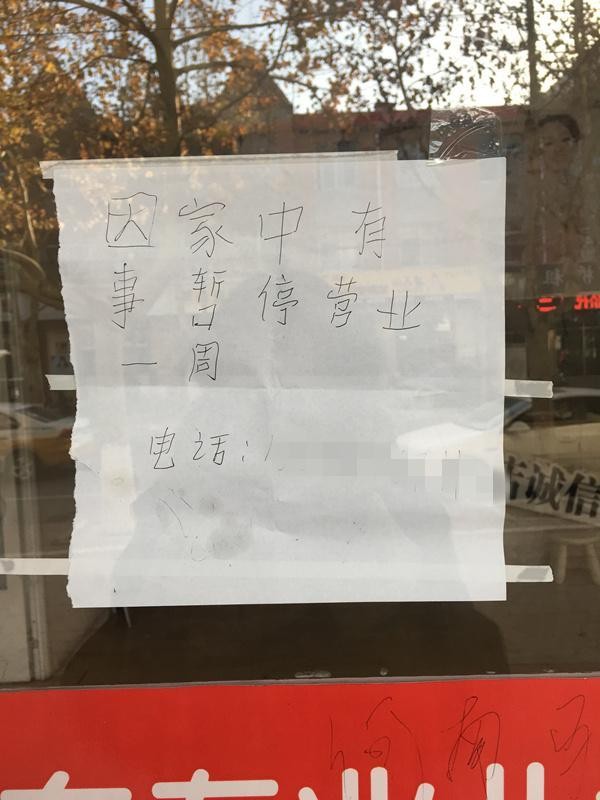 因家中有
事暂停营业
一周
电话:
诚信